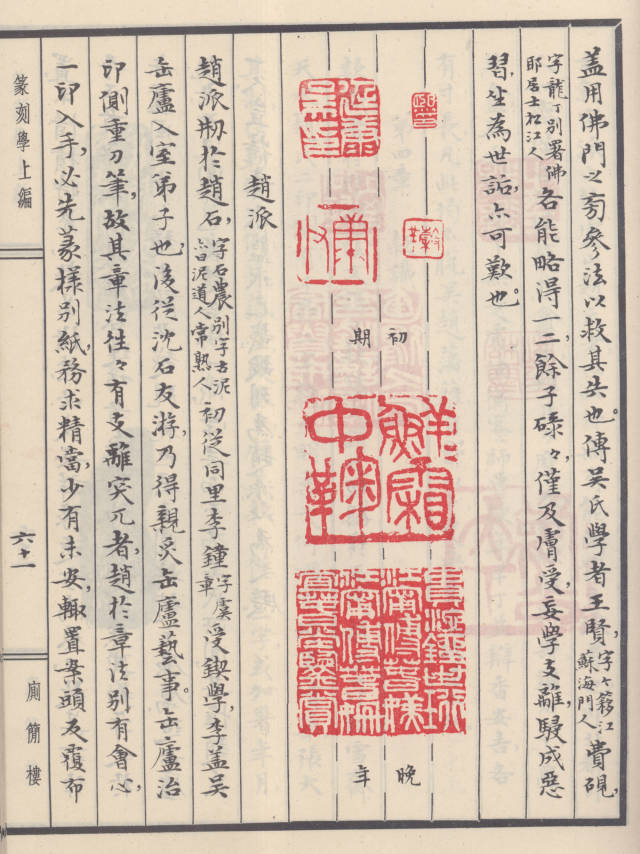 盖用佛門之旁參法以救其失也。傳吳氏學者王賢，字个簃江蘇海門人費硯，
字龍丁別署佛耶居士松江人各能略得一二，餘子碌々，僅及膚受，妄學支離，駸成惡
習，坐為世詬，亦可歎也。
初期
晚年
趙派
趙派刱於趙石，字石農別字古泥亦曰泥道人常熟人初從同里李鐘字虞章受鍥學，李蓋吳
缶廬入室弟子也，後從沈石友游，乃得親炙缶廬藝事。缶廬治
印側重刀筆，故其章法往々有支離突兀者，趙於章法別有會心，
一印入手，必先篆樣別紙，務求精當，少有未安，輙置案頭反覆布
篆刻學上編
六十一
廁簡樓